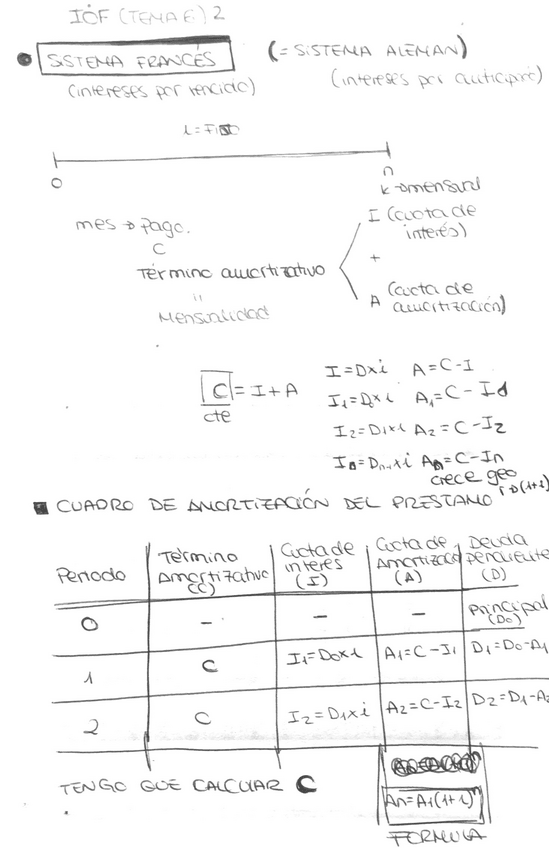 IOF (TEMA 6) 2
SISTEMA FRANCÉS (= SISTEMA ALEMAN)
(intereses por vencido) (intereses por anticipado)
i = FIJO
0 n
k → mensual
mes → Pago.
C
Término amortizativo
"
Mensualidad
I (cuota de interés)
+
A (cuota de amortización)
C = I + A
cte
I = D x i A = C - I
I1 = D0 x i A1 = C - I1
I2 = D1 x i A2 = C - I2
In = Dn-1 x i An = C - In
crece geo
→ (1+i)
CUADRO DE AMORTIZACIÓN DEL PRESTAMO
Periodo | Término Amortizativo (C) | Cuota de interés (I) | Cuota de Amortizació (A) | Deuda pendiente (D)
0 | - | - | - | Principal (D0)
1 | C | I1 = D0 x i | A1 = C - I1 | D1 = D0 - A1
2 | C | I2 = D1 x i | A2 = C - I2 | D2 = D1 - A2
TENGO QUE CALCULAR C
An = A1 (1+i)^n
FORMULA